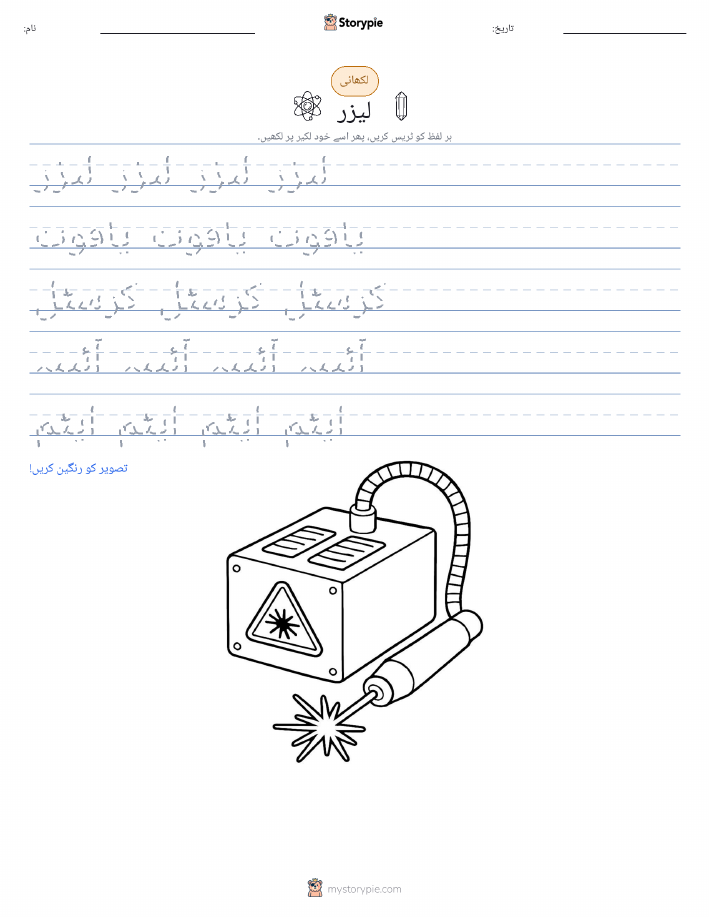 Storypie
نام:
تاریخ:
لکھائی
لیزر
ہر لفظ کو ٹریس کریں، پھر اسے خود لکیر پر لکھیں۔
لیزر لیزر لیزر لیزر
یاقوت یاقوت یاقوت
کرسٹل کرسٹل کرسٹل
آئینہ آئینہ آئینہ آئینہ
ایٹم ایٹم ایٹم ایٹم
تصویر کو رنگین کریں!
mystorypie.com